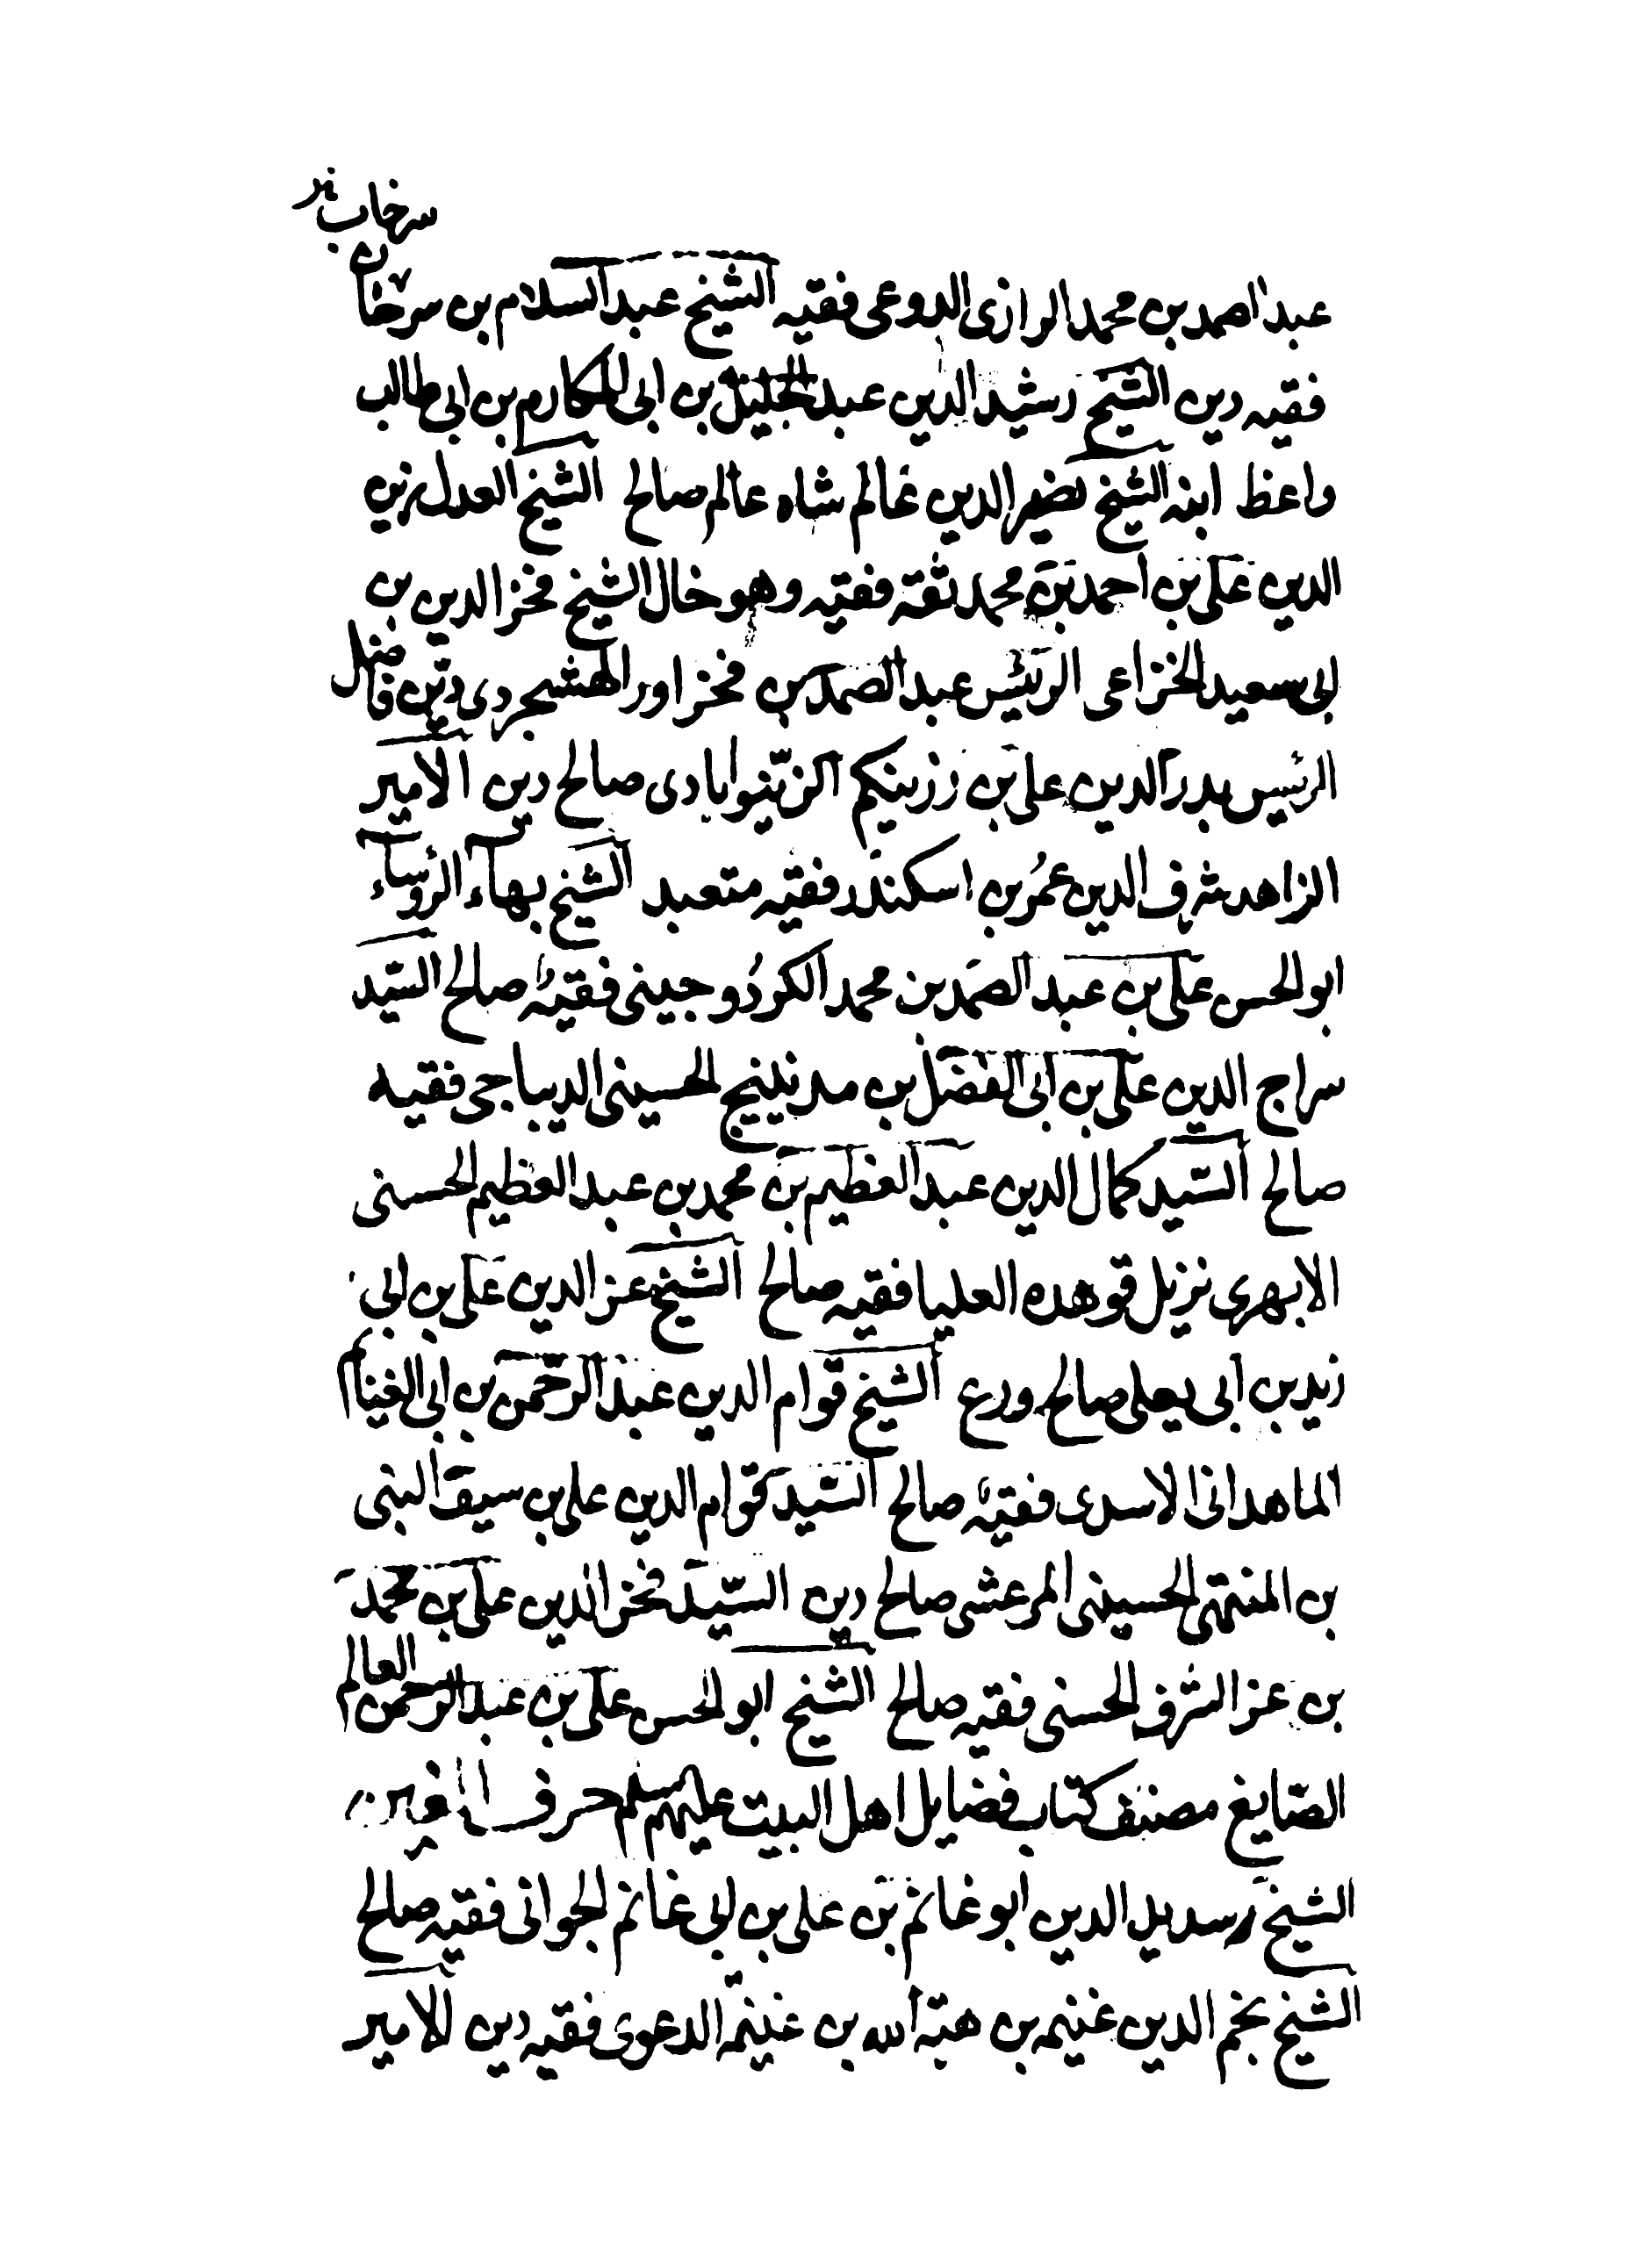 سرخاب نر
عبد الصمد بن محمد الرازى الدوعى فقيه الشيخ عبد السلام بن سرخان
فقيه دين الشيخ رشيد الدين عبد الجليل بن ابى المكارم بن ابى طالب
واعظ ابنه الشيخ نصير الدين عالم شاه عالم صالح الشيخ العدل زين
الدين على بن احمد بن محمد ثقة فقيه وهو خال الشيخ فخر الدين بن
ابى سعيد الخزاعى الرئيس عبد الصمد بن فخراور الهشجردى دين فاضل
الرئيس بدر الدين على بن زرينكم الزينوابادى صالح دين الامير
الزاهد شرف الدين عمر بن اسكندر فقيه متعبد الشيخ بهاء الرؤساء
ابو الحسن على بن عبد الصمد بن محمد الكردوجينى فقيه صالح السيد
سراج الدين على بن ابى الفضل بن مدينيج الحسينى الديباجى فقيه
صالح السيد كمال الدين عبد العظيم بن محمد بن عبد العظيم الحسنى
الابهرى نزيل قوهده العليا فقيه صالح الشيخ عز الدين على بن ابى
زيد بن ابى يعلى صالح ورع الشيخ قوام الدين عبد الرحمن بن ابى الغنايم
الماهدانى الاسدى فقيه صالح السيد قوام الدين على بن سيف النبى
بن المنتهى الحسينى المرعشى صالح دين السيد فخر الدين على بن محمد
بن عز الشرف الحسنى فقيه صالح الشيخ ابو الحسن على بن عبد الرحمن العالم
الصايغ مصنف كتاب فضايل اهل البيت عليهم سلم حرف الغين
الشيخ رسديل الدين ابو غانم بن على بن ابى غانم الجوانى فقيه صالح
الشيخ نجم الدين غنيمه بن هبة الله بن غنيمة الدعوى فقيه دين الامير